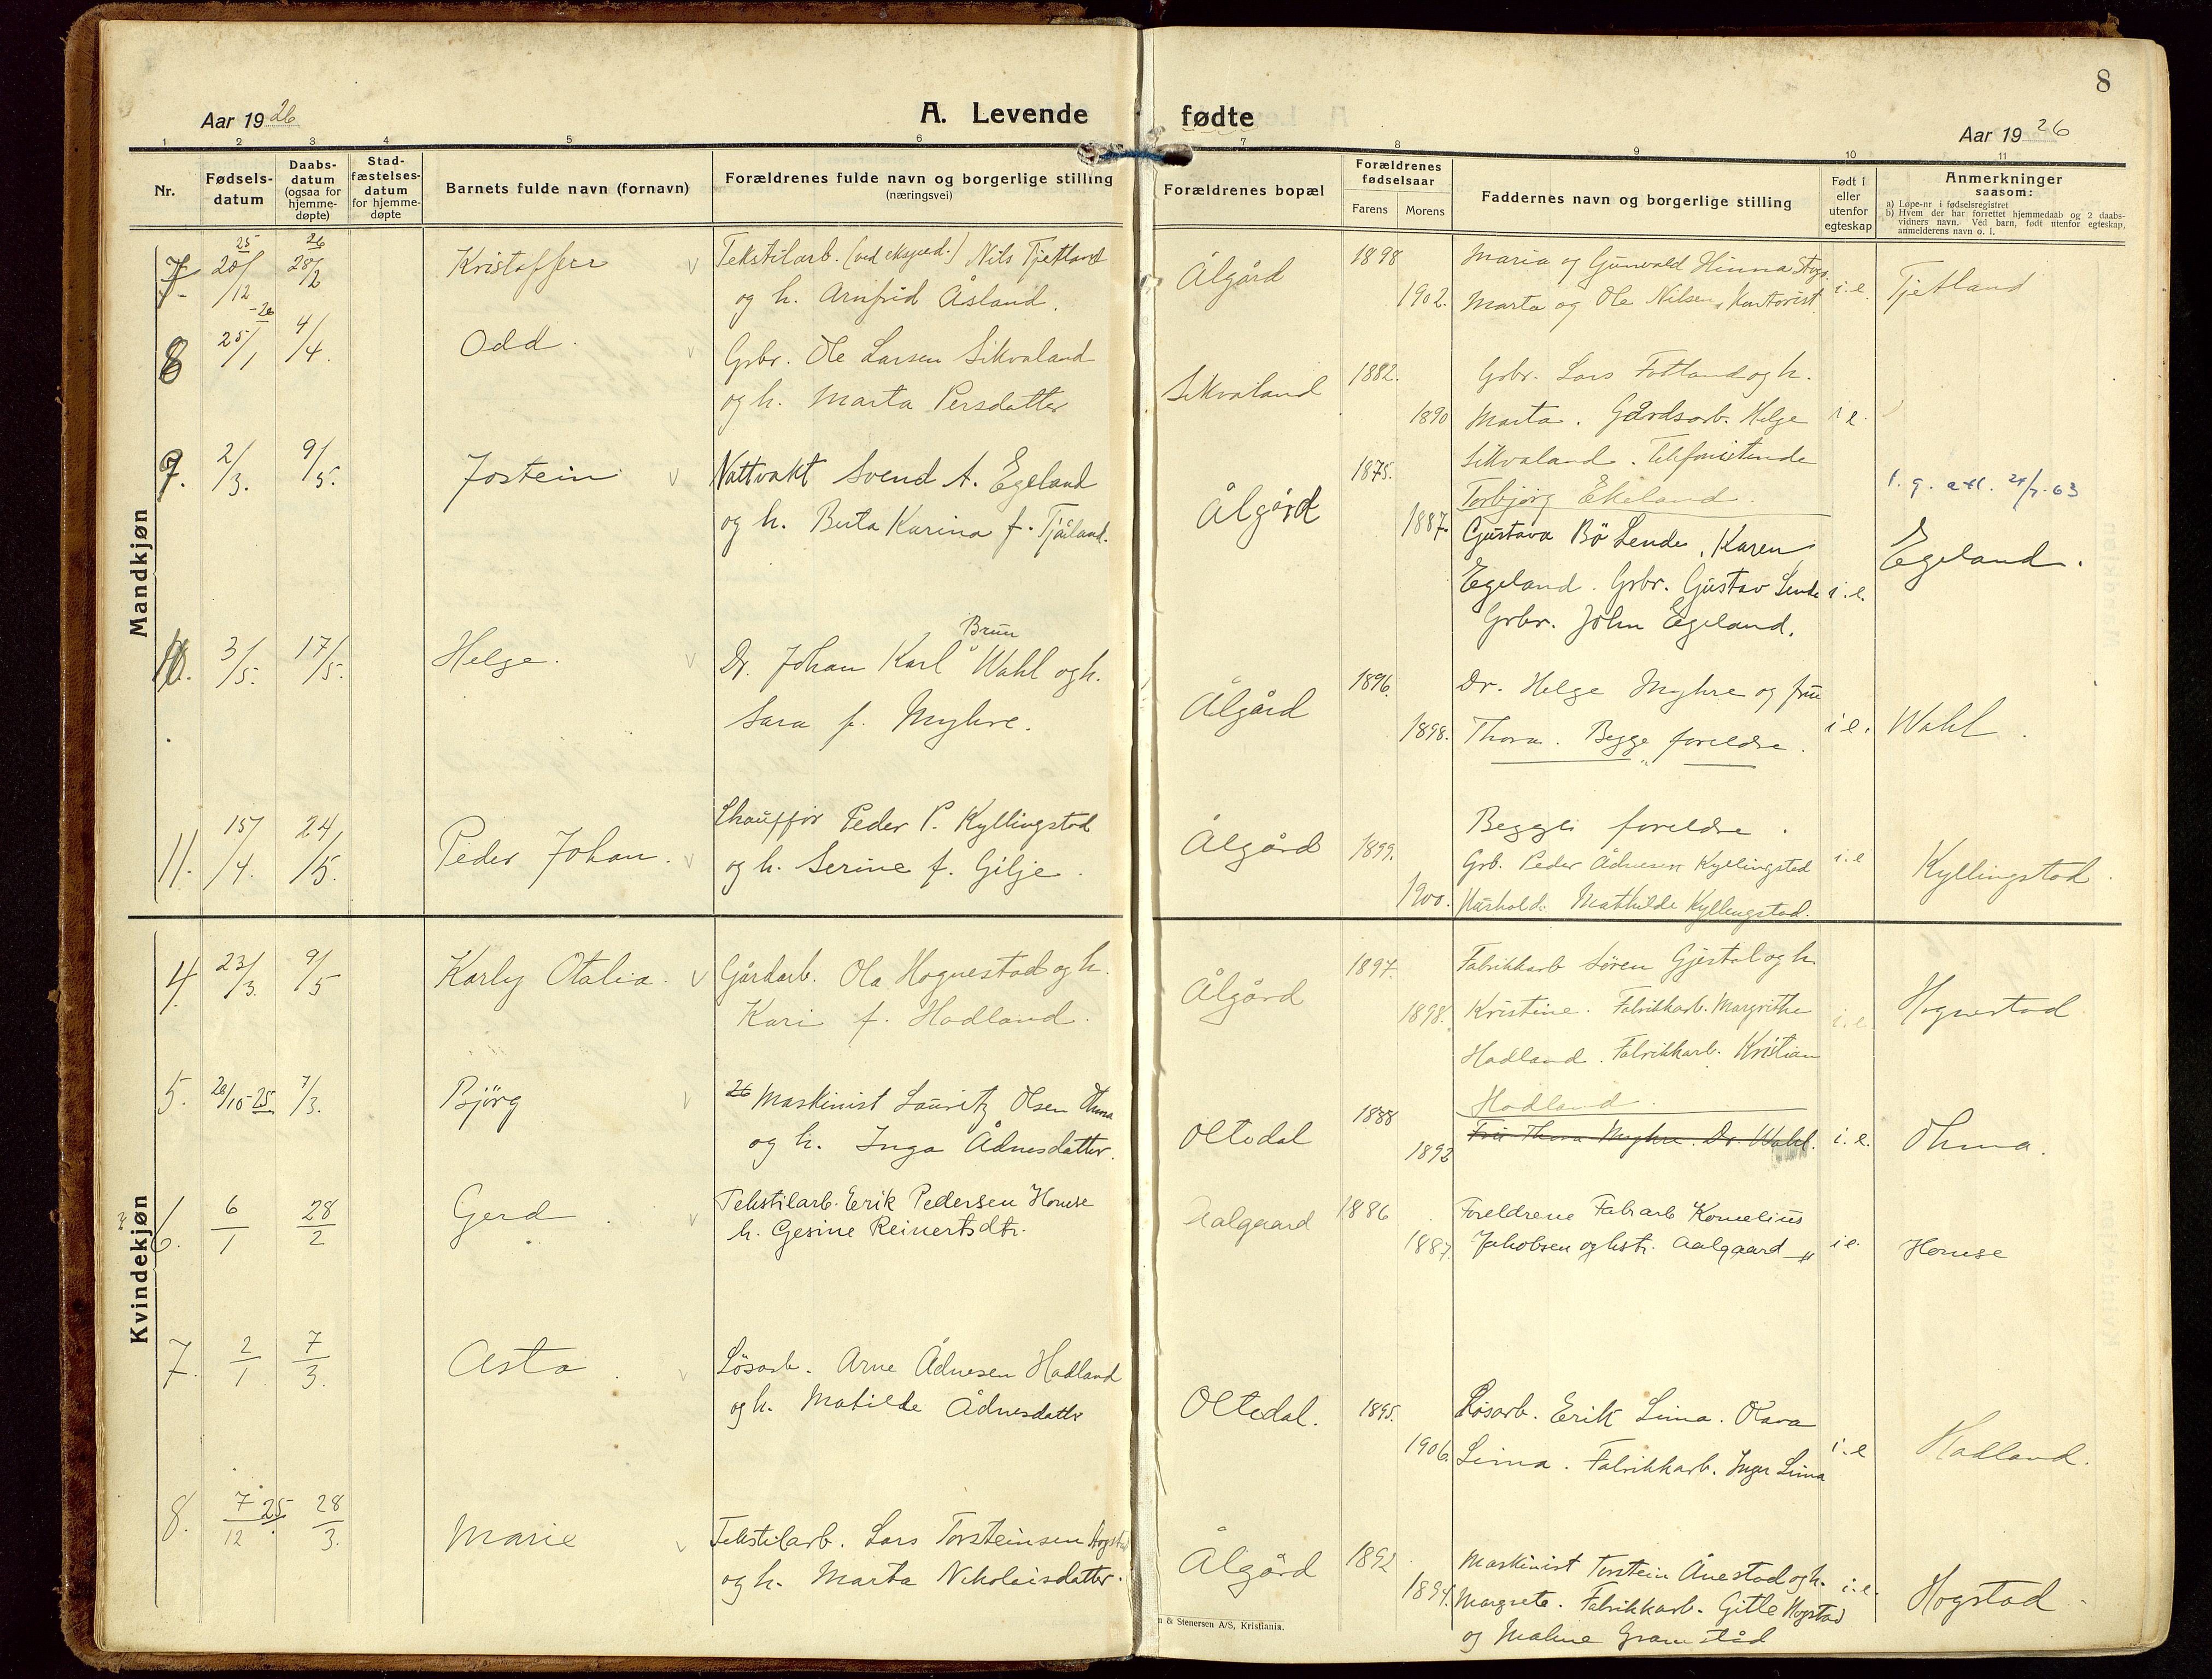 8
Aar 1926
A. Levende fødte
Aar 1926
1 2 3 4 5 6 7 8 9 10 11
Nr.
Fødsels-
datum
Daabs-
datum
(ogsaa for
hjemme-
døpte)
Stad-
fæstelses-
datum
for hjemme-
døpte
Barnets fulde navn (fornavn)
Forældrenes fulde navn og borgerlige stilling
(næringsvei)
Forældrenes bopæl
Forældrenes
fødselsaar
Farens Morens
Faddernes navn og borgerlige stilling
Født i
eller
utenfor
egteskap
Anmerkninger
saasom:
a) Løpe-nr i fødselsregistret
b) Hvem der har forrettet hjemmedaab og 2 daabs-
vidners navn. Ved barn, født utenfor egteskap,
anmelderens navn o. l.
Mandkjøn
7 20/12 25 28/2 26 Kristoffer
Tekstilarb. (ved eksped.) Nils Tjetland
og h. Arnfrid Åsland.
Ålgård 1898 1902.
Maria og Gunvald Hinna
Marta og Ole Nilsen, Kontorist
i.e. Tjetland
8 25/1 -26 4/4. Odd.
Grbr. Ole Larsen Sikvaland
og h. Marta Persdatter
Sikvaland 1882. 1890
Grbr. Lars Fotland og h.
Marta. Gårdsarb. Helge
Sikvaland. Telefonistinde
Torbjørg Ekeland.
i e.
9. 2/3. 9/5. Jostein
Nattvakt Svend A. Egeland
og h. Berta Karina f. Tjåland.
Ålgård 1875. 1887.
Gustava Bö Lende, Karen
Egeland. Grbr. Gustav Lende
Grbr. John Egeland.
i.e.
Egeland.
10. 3/5. 17/5. Helge.
Brun
Dr. Johan Karl Wahl og h.
Sara f. Myhre.
Ålgård 1896. 1898.
Dr. Helge Myhre og frue
Thora. Begge foreldre.
i e. Wahl
11. 15/4. 24/5. Peder Johan.
Chauffør Peder P. Kyllingstad
og h. Serine f. Gilje.
Ålgård 1899. 1900.
Begge foreldre.
Grb. Peder Ådnesen Kyllingstad
Hushold. Mathilde Kyllingstad.
i.e Kyllingstad.
Kvindekjøn
4 23/3. 9/5 Karly Otalia.
Gårdarb. Ola Hognestad og h.
Kari f. Hadland.
Ålgård 1897. 1898.
Fabrikkarb Sören Gjestal og h.
Kristine. Fabrikkarb. Margrethe
Hadland. Fabrikkarb. Kristian
Hadland.
i.e. Hognestad
5. 26/10-25 7/3. Bjørg
26 Maskinist Lauritz Olsen Ohma
og h. Inga Ådnesdatter.
Oltedal 1888 1892
Frue Thora Myhre. Dr. Wahl.
i.e. Ohma.
6. 6/1 28/2 Gerd.
Tekstilarb. Erik Pedersen Homse
h. Gesine Reinertsdtr.
Aalgaard 1886 1887.
Foreldrene Fabarb Kornelius
Jakobsen og hstr. Aalgaard
i e. Homse
7. 2/1 7/3. Asta.
Løsarb. Arne Ådnesen Hadland
og h. Matilde Ådnesdatter
Oltedal. 1895. 1906.
Løsarb. Erik Lima. Olava
Lima. Fabrikkarb. Inger Lima
i.e Hadland.
8. 7/12 25 28/3. Marie
Tekstilarb. Lars Torsteinsen Hogstad
og h. Marta Nikolaisdatter.
Ålgård 1892 1894.
Maskinist Torstein Ånestad og h.
Margrete. Fabrikkarb. Gitle Hogstad
og Malene Gramstad
i.e. Hogstad
n & Stenersen A/S, Kristiania.